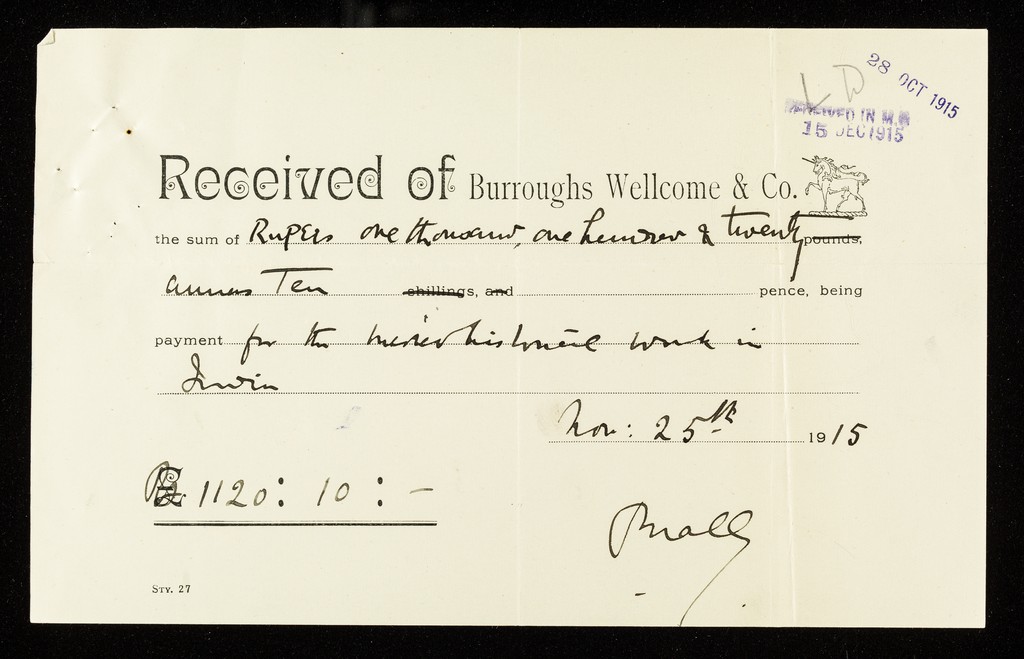 28 OCT 1915
L D
RECEIVED IN W.M
15 DEC 1915
Received of Burroughs Wellcome & Co.
the sum of Rupees one thousand, one hundred & twenty pounds,
annas Ten shillings, and pence, being
payment for the work in
Nov: 25th 1915
Rs. £ 1120: 10 : -
STY. 27